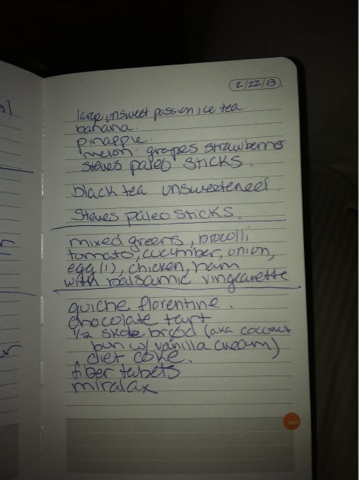 2/22/13
large unsweet passion ice tea
banana
pinapple
melon grapes strawberries
Steves paleo sticks.
black tea unsweetened
Steves paleo sticks.
mixed greens, brocolli
tomato, cucumber, onion,
egg (1), chicken, ham
with balsamic vingearette
quiche florentine.
chocolate tart
1/2 skole brod (aka coconut
bun w/ vanilla cream)
diet coke.
fiber tabets
miralax